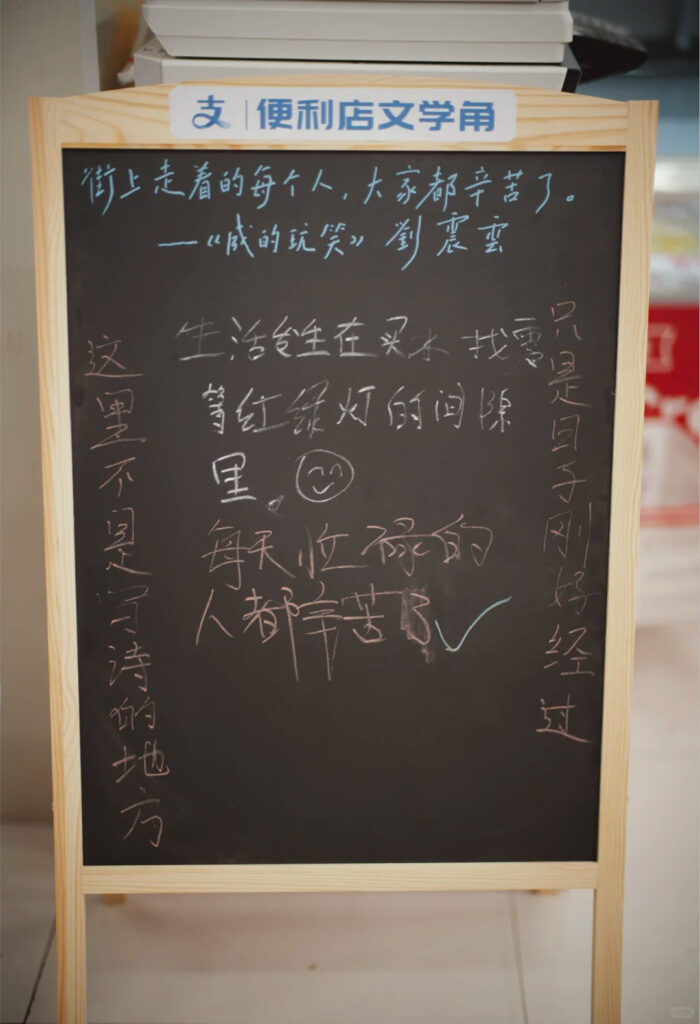 支 | 便利店文学角
街上走着的每个人，大家都辛苦了。
—《咸的玩笑》劉震雲
生活发生在买水 找零
等红绿灯的间隙
里。
每天忙碌的
人都辛苦了
这里不是写诗的地方
只是日子刚好经过